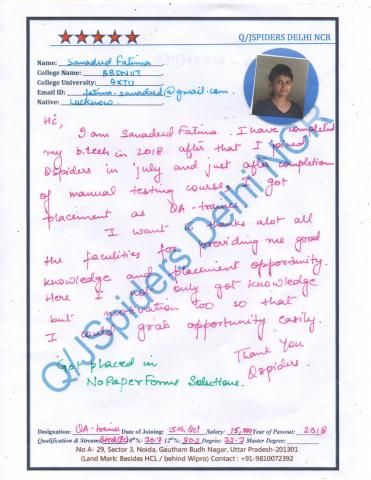 Q/JSPIDERS DELHI NCR
Name: Sanadud Fatima
College Name: BBDNIIT
College University: AKTU
Email ID: fatima.sanadud@gmail.com
Native: Lucknow.
Hi,
I am Sanadud Fatima. I have completed
my b.tech in 2018 after that I joined
Qspiders in july and just after completion
of manual testing course, I got
placement as QA-trainee
I want to thanks alot all
the faculities for providing me good
knowledge and placement opportunity.
Here I not only got knowledge
but motivation too so that
I could grab opportunity easily.
Thank You
Qspiders.
Got placed in
NoPaperForms Solutions.
Q/JSpiders Delhi NCR
Designation: QA-trainee Date of Joining: 15th Oct Salary: 15,000 Year of Passout: 2018
Qualification & Stream: 10th%: 70.7 12th%: 80.2 Degree: 72.7 Master Degree:
No A- 29, Sector 3, Noida, Gautham Budh Nagar, Uttar Pradesh-201301
(Land Mark: Besides HCL / behind Wipro) Contact : +91-9810072392